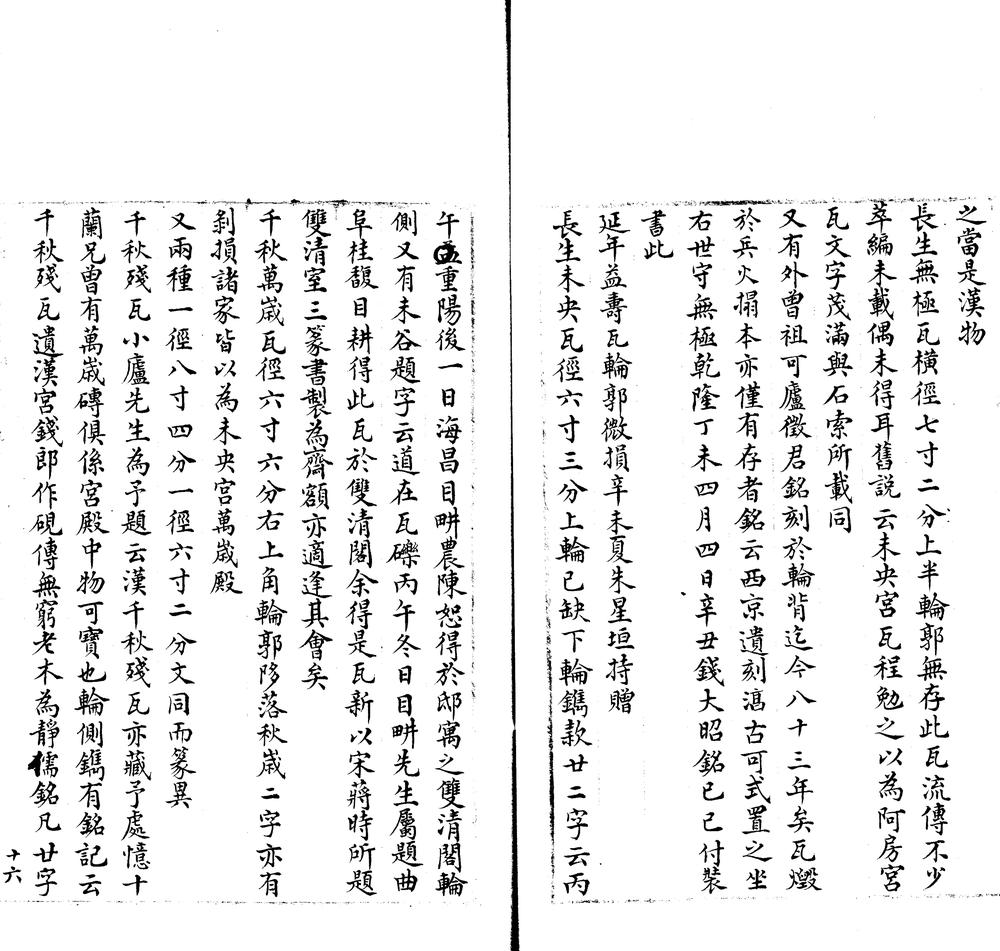 之當是漢物
長生無極瓦橫徑七寸二分上半輪郭無存此瓦流傳不少
萃編未載偶未得耳舊說云未央宮瓦程勉之以為阿房宮
瓦文字茂滿與石索所載同
又有外曾祖可廬徵君銘刻於輪背迄今八十三年矣瓦燬
於兵火搨本亦僅有存者銘云西京遺刻澒古可式置之坐
右世守無極乾隆丁未四月四日辛丑錢大昭銘己巳付裝
書此
延年益壽瓦輪郭微損辛未夏朱星垣持贈
長生未央瓦徑六寸三分上輪已缺下輪鐫款廿二字云丙
午孟重陽後一日海昌目畊農陳恕得於邸寓之雙清閣輪
側又有未谷題字云道在瓦礫丙午冬日目畊先生屬題曲
阜桂馥目耕得此瓦於雙清閣余得是瓦新以宋蔣時所題
雙清室三篆書製為齋額亦適逢其會矣
千秋萬歲瓦徑六寸六分右上角輪郭陊落秋歲二字亦有
剝損諸家皆以為未央宮萬歲殿
又兩種一徑八寸四分一徑六寸二分文同而篆異
千秋殘瓦小廬先生為予題云漢千秋殘瓦亦藏予處憶十
蘭兄曾有萬歲磚俱係宮殿中物可寶也輪側鐫有銘記云
千秋殘瓦遺漢宮錢郎作硯傳無窮老木為靜儒銘凡廿字
十六